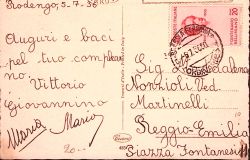 Rodengo, 5-7-36
Auguri e baci
pel tuo complean
no Vittorio
Giovannino
Maria Mario
20
Sig. Maddalena
Nonzioli Ved.
Martinelli
Reggio-Emilia
Piazza Fontanesi